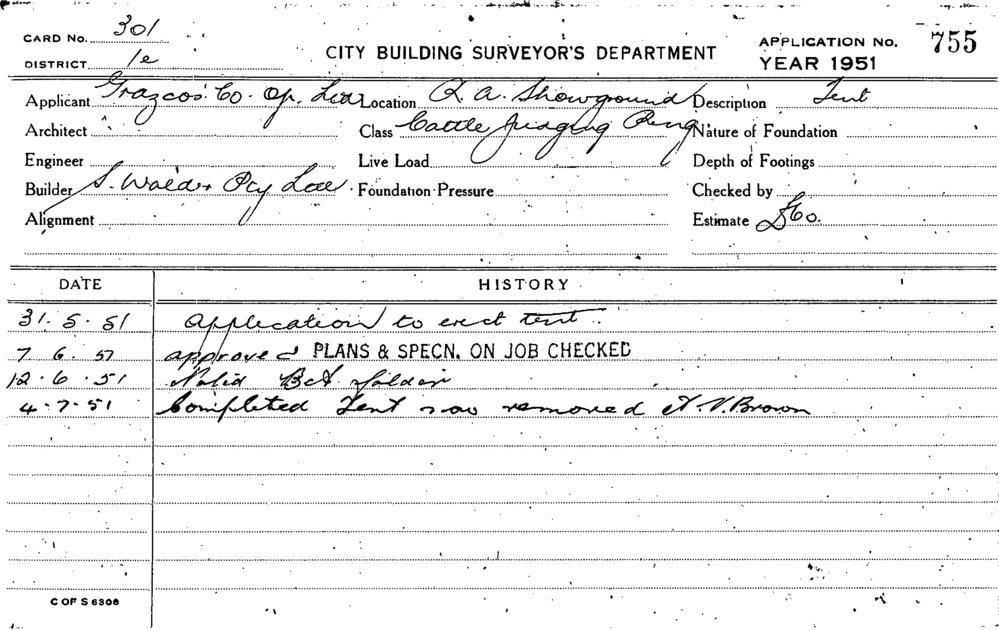 CARD No. 301
DISTRICT 1e
CITY BUILDING SURVEYOR'S DEPARTMENT
APPLICATION No. 755
YEAR 1951
Applicant Grazcos Co. Op. Ltd Location R. A. Showground Description Tent
Architect Class Cattle Judging Ring Nature of Foundation
Engineer Live Load Depth of Footings
Builder S. Walder Pty Ltd. Foundation Pressure Checked by
Alignment Estimate £60.
DATE HISTORY
31. 5. 51 Application to erect tent.
7. 6. 51 approved PLANS & SPECN. ON JOB CHECKED
12. 6. 51
4. 7. 51 Completed Tent now removed V. Brown
C OF S 6306